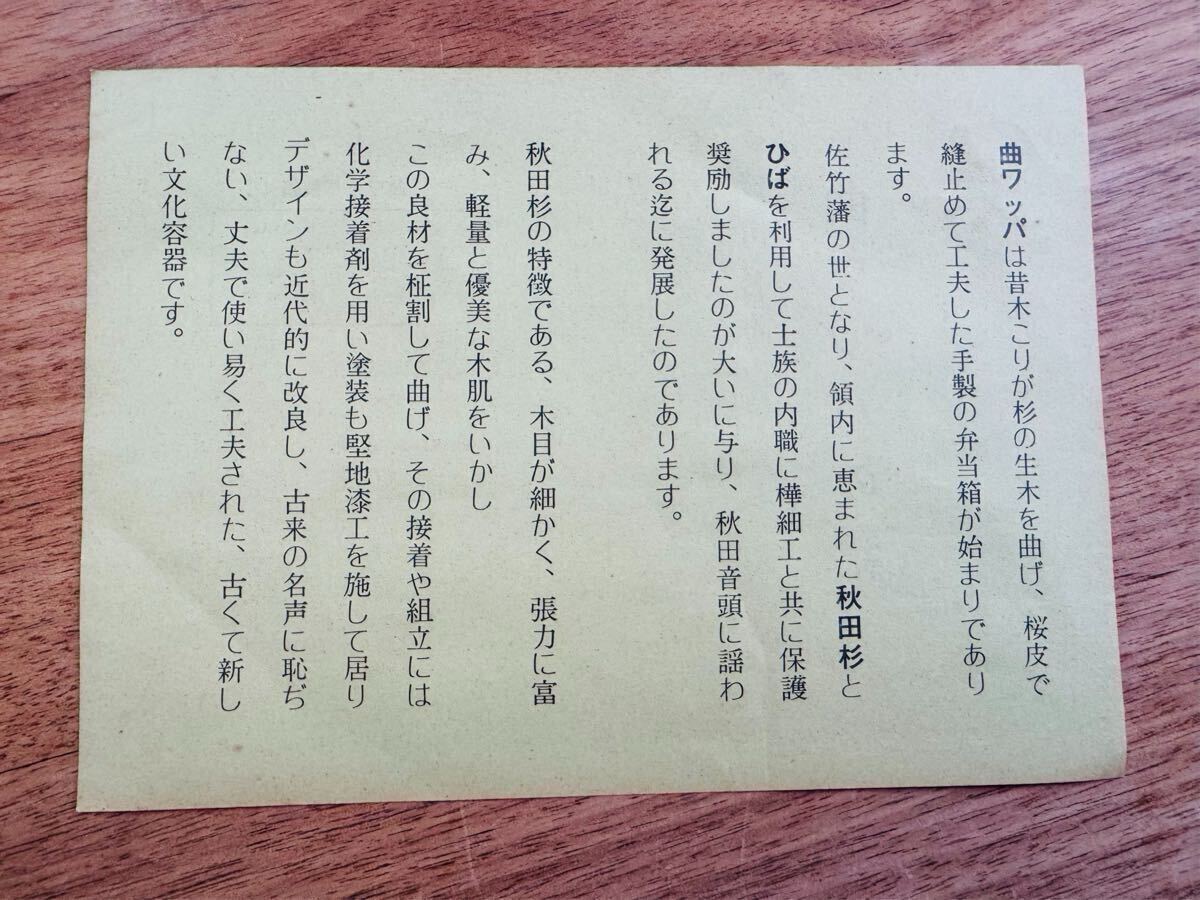 曲ワッパは昔木こりが杉の生木を曲げ、桜皮で
縫止めて工夫した手製の弁当箱が始まりであり
ます。
佐竹藩の世となり、領内に恵まれた秋田杉と
ひばを利用して士族の内職に樺細工と共に保護
奨励しましたのが大いに与り、秋田音頭に謡わ
れる迄に発展したのであります。
秋田杉の特徴である、木目が細かく、張力に富
み、軽量と優美な木肌をいかし
この良材を柾割して曲げ、その接着や組立には
化学接着剤を用い塗装も堅地漆工を施して居り
デザインも近代的に改良し、古来の名声に恥ぢ
ない、丈夫で使い易く工夫された、古くて新し
い文化容器です。